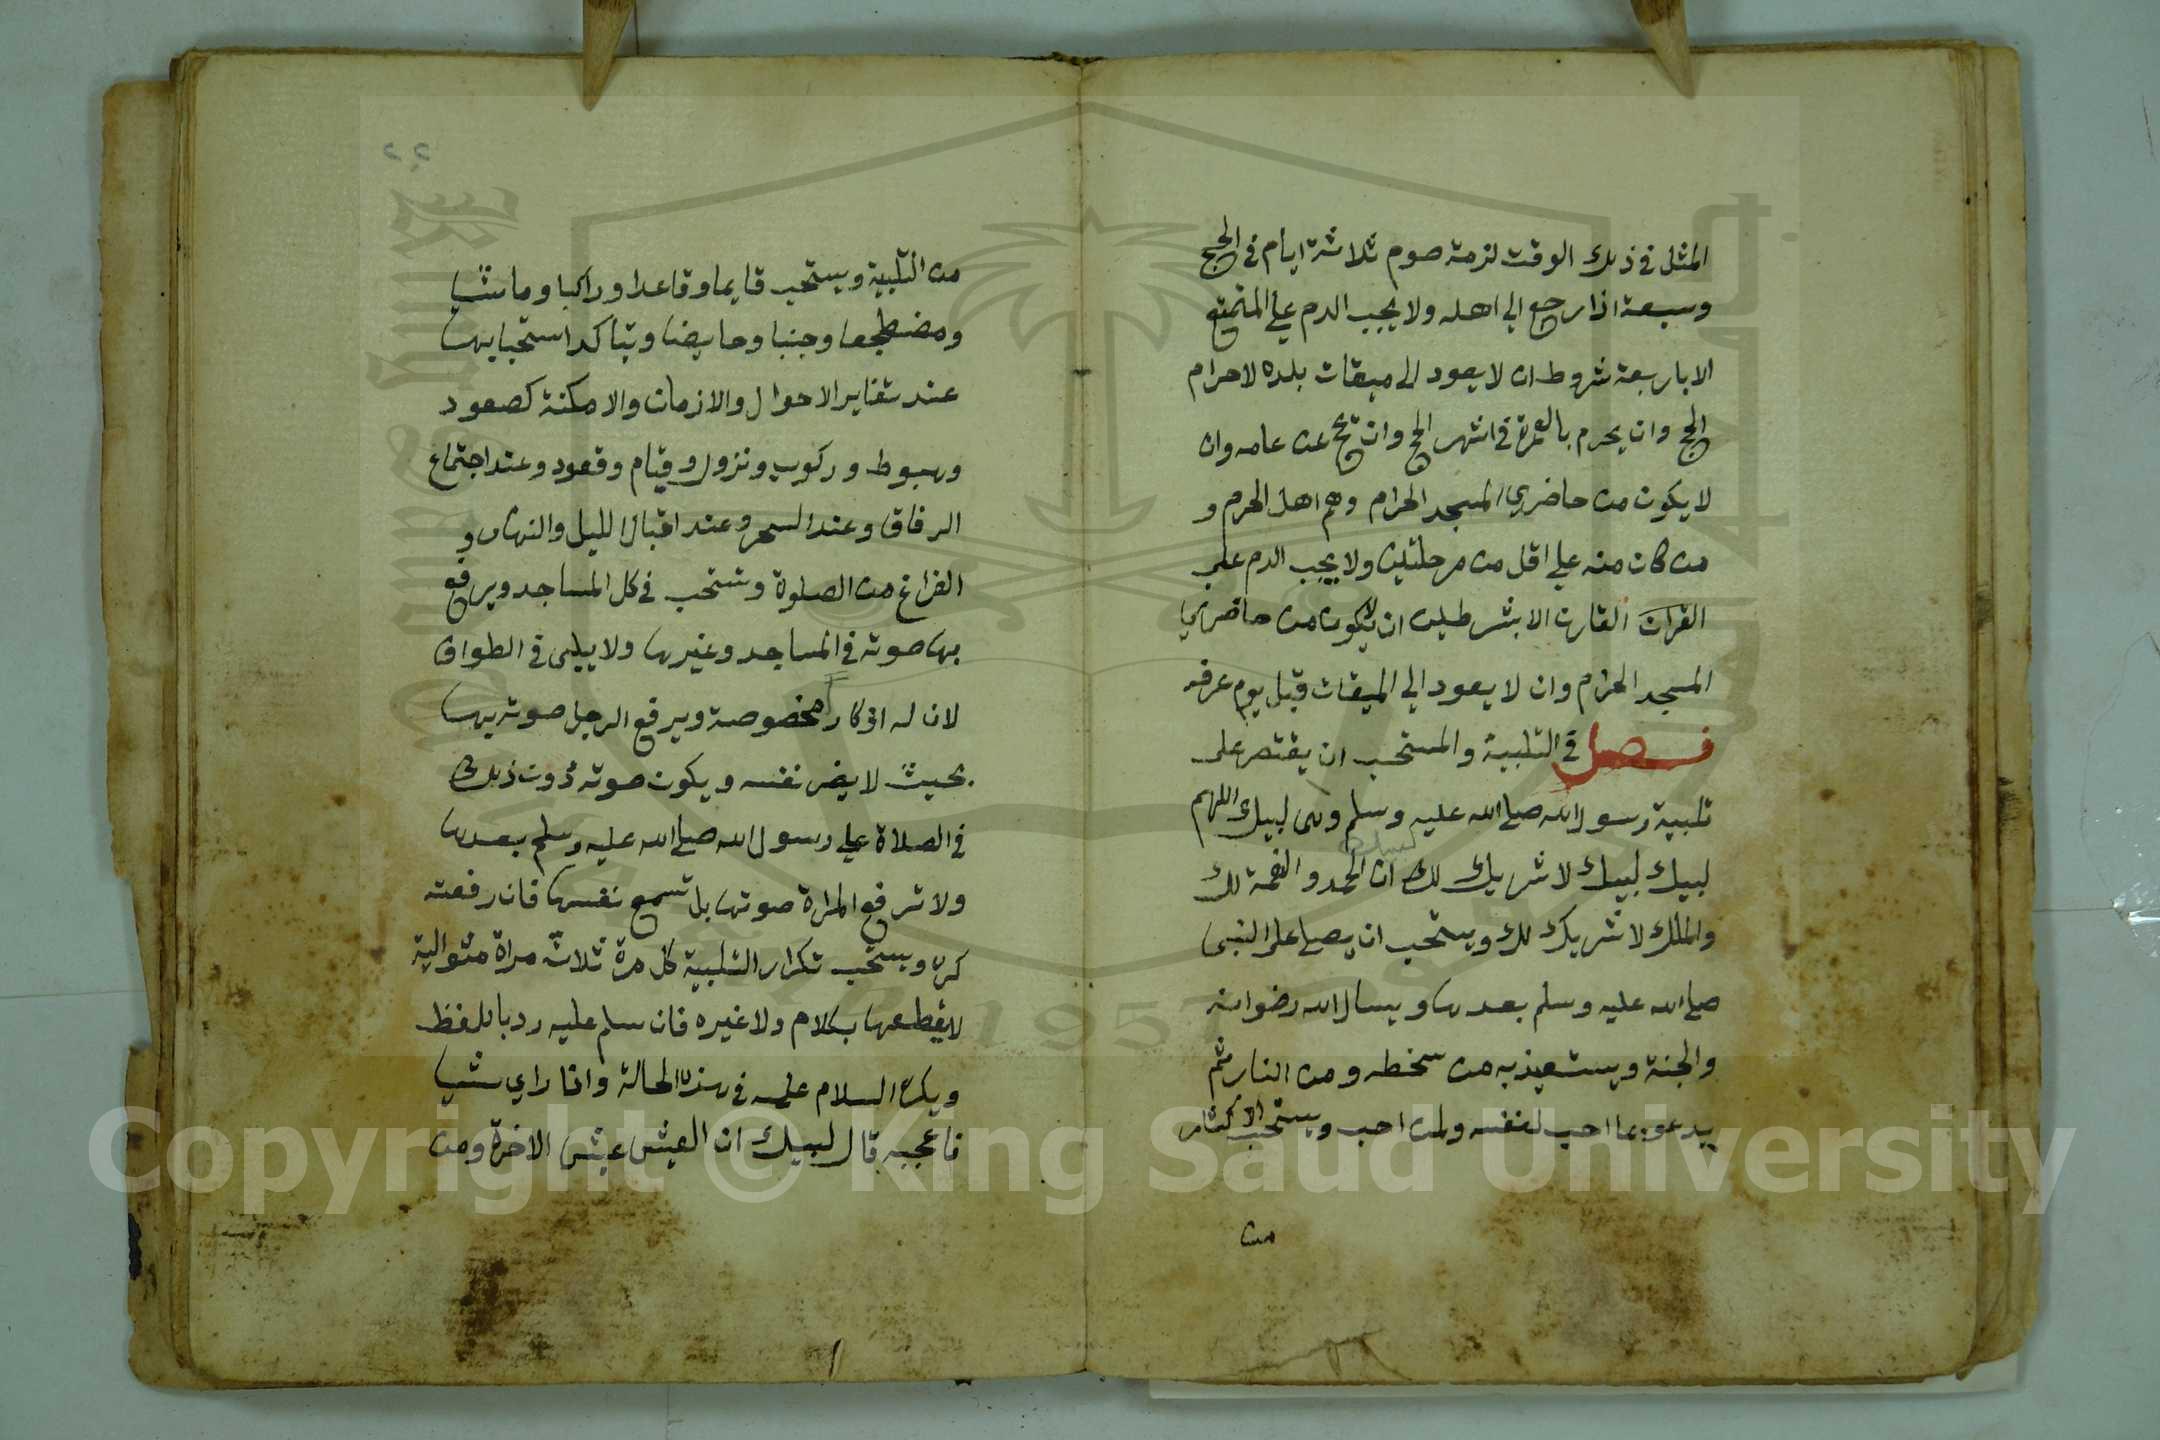 المثل في ذلك الوقت لزمه صوم ثلاثة ايام في الحج
وسبعة اذا رجع الي اهله ولا يجب الدم علي المتمتع
الا باربعة شروط ان لا يعود الى ميقات بلده لاحرام
الحج وان يحرم بالعمرة في اشهر الحج وان يحج عن عامه وان
لا يكون من حاضري المسجد الحرام وهم اهل الحرم و
من كان منه علي اقل من مرحلتين ولا يجب الدم على
القران القارن الا بشرطين ان لا يكون من حاضري
المسجد الحرام وان لا يعود الي الميقات قبل يوم عرفه
فصل في التلبية والمستحب ان يقتصر على
تلبية رسول الله صلي الله عليه وسلم وهى لبيك اللهم
لبيك لبيك لا شريك لك ان الحمد والنعمة لك
والملك لا شريك لك ويستحب ان يصلي على النبي
صلي الله عليه وسلم بعدها ويسال الله رضوانه
والجنة ويستعيذ به من سخطه ومن النار ثم
يدعو بما احب لنفسه ولمن احب ويستحب الاكثار
من
٢٢
من التلبية ويستحب قايما وقاعدا وراكبا وماشيا
ومضطجعا وجنبا وحايضا ويتاكد استحبابها
عند تغاير الاحوال والازمان والامكنة كصعود
وهبوط وركوب ونزول وقيام وقعود وعند اجتماع
الرفاق وعند السحر وعند اقبال الليل والنهار و
الفراغ من الصلوة وتستحب في كل المساجد ويرفع
بها صوته في المساجد وغيرها ولا يلبى في الطواف
لان له اذكارا مخصوصة ويرفع الرجل صوته بها
بحيث لا يضر نفسه ويكون صوته دون ذلك
في الصلاة علي رسول الله صلي الله عليه وسلم بعدها
ولا ترفع المراة صوتها بل تسمع نفسها فان رفعته
كره ويستحب تكرار التلبية كل مرة ثلاث مراة متوالية
لا يقطعها بكلام ولا غيره فان سلم عليه رد باللفظ
ويكره السلام عليه في هذه الحالة واذا راي شيا
فاعجبه قال لبيك ان العيش عيش الاخرة ومن
1957
Copyright © King Saud University